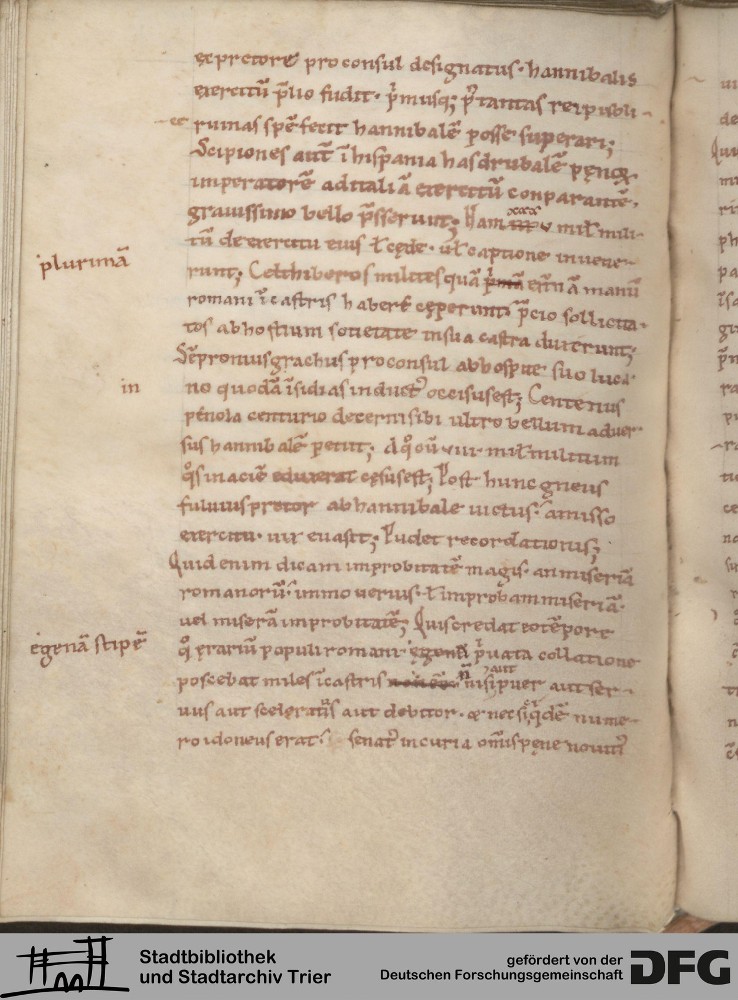 ex pretore pro consul designatus· hannibalis
exercitū p̄lio fudit· p̍musq; p̄ tantas reipubli
et ruinas spē fecit hannibalē posse superari;
Scipiones aut̄ ī hispania hasdrubalē
imperatorē ad italiā exercitū conparantē,
grauissimo bello p̄sserunt; Nam xxxv mil̄ mili
tū de exercitu eius ł cęde· uł captione inuene
runt; Celthiberos milites quā p̍mā enī ā manū
plurimā
romani ī castris haberę cęperunt p̄cio sollicita
tos ab hostium sotietate in sua castra duxerunt;
Sēpronius grachus pro consul ab hospite suo luca
in
no quodā īsidias inductꝰ occisus est; Centenius
penola centurio decerni sibi ultro bellum aduer
sus hannibalē petiit; A quo cū viii mil̄ militum
quos in aciē eduxerat cęsus est; Post hunc gneus
fuluius pretor ab hannibale uictus· amisso
exercitu· uix euasit; Pudet recordationis;
Quid enim dicam improbitatē magis· an miseriā
romanorū· immo uerius· ł improbam miseriā·
uel miserā improbitatē; Quis credat eo tēpore
egenā stipē
quo ęrariū populi romani egena p̍uata collatione
poscebat miles ī castris nisi puer aut ser
aut
uus aut sceleratꝰ aut debitor· & nec sic quidē nume
ro idoneus erat· senatꝰ in curia omīs pęne nouitiꝰ
Stadtbibliothek
und Stadtarchiv Trier
gefördert von der
Deutschen Forschungsgemeinschaft
DFG